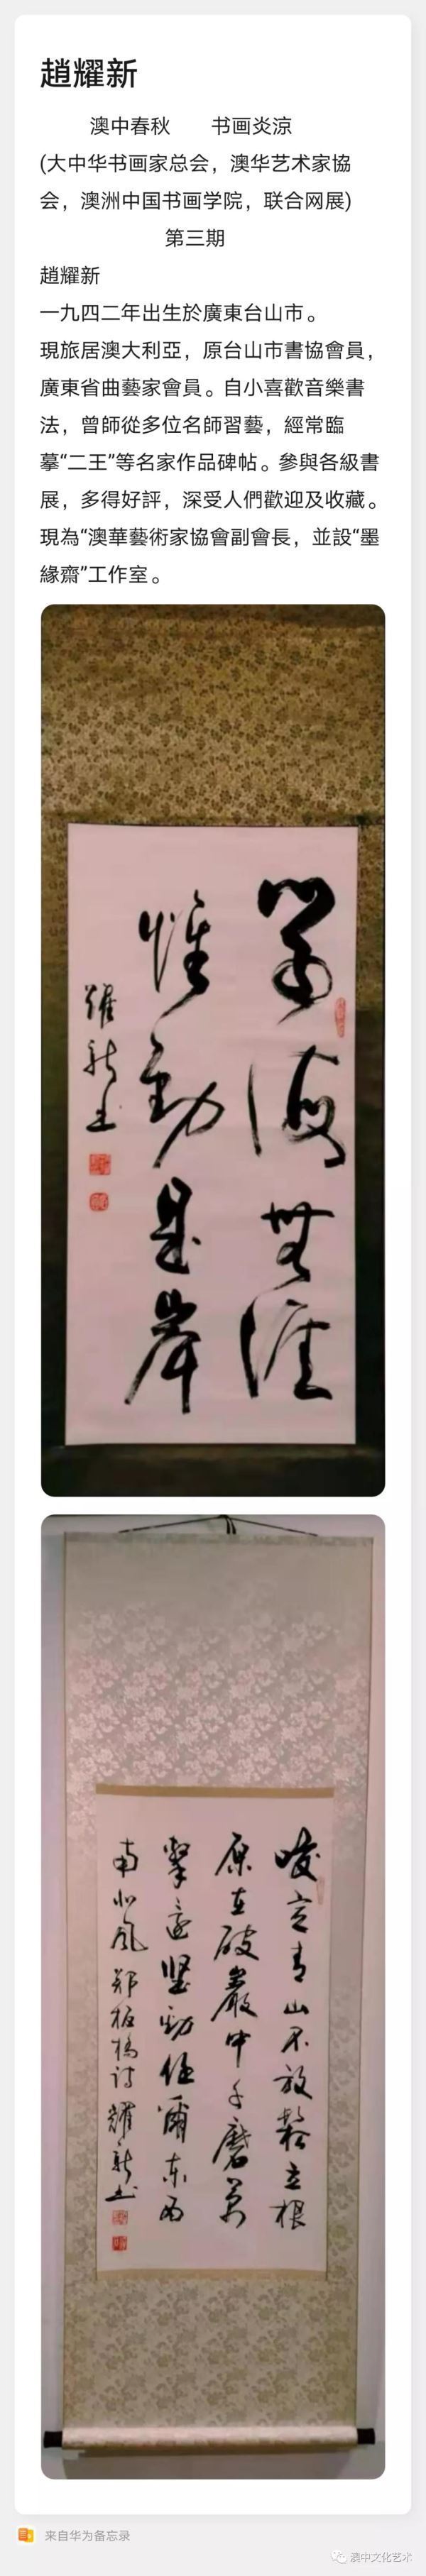 趙耀新
澳中春秋 书画炎涼
(大中华书画家总会，澳华艺术家協
会，澳洲中国书画学院，联合网展)
第三期
趙耀新
一九四二年出生於廣東台山市。
現旅居澳大利亞，原台山市書協會員，
廣東省曲藝家會員。自小喜歡音樂書
法，曾師從多位名師習藝，經常臨
摹“二王”等名家作品碑帖。參與各級書
展，多得好評，深受人們歡迎及收藏。
現為“澳華藝術家協會副會長，並設“墨
緣齋”工作室。
学海無涯
惟勤是岸
耀新書
咬定青山不放鬆立根
原在破巖中千磨萬
擊還堅勁任爾東西
南北風 鄭板橋詩 耀新書
来自华为备忘录
澳中文化艺术